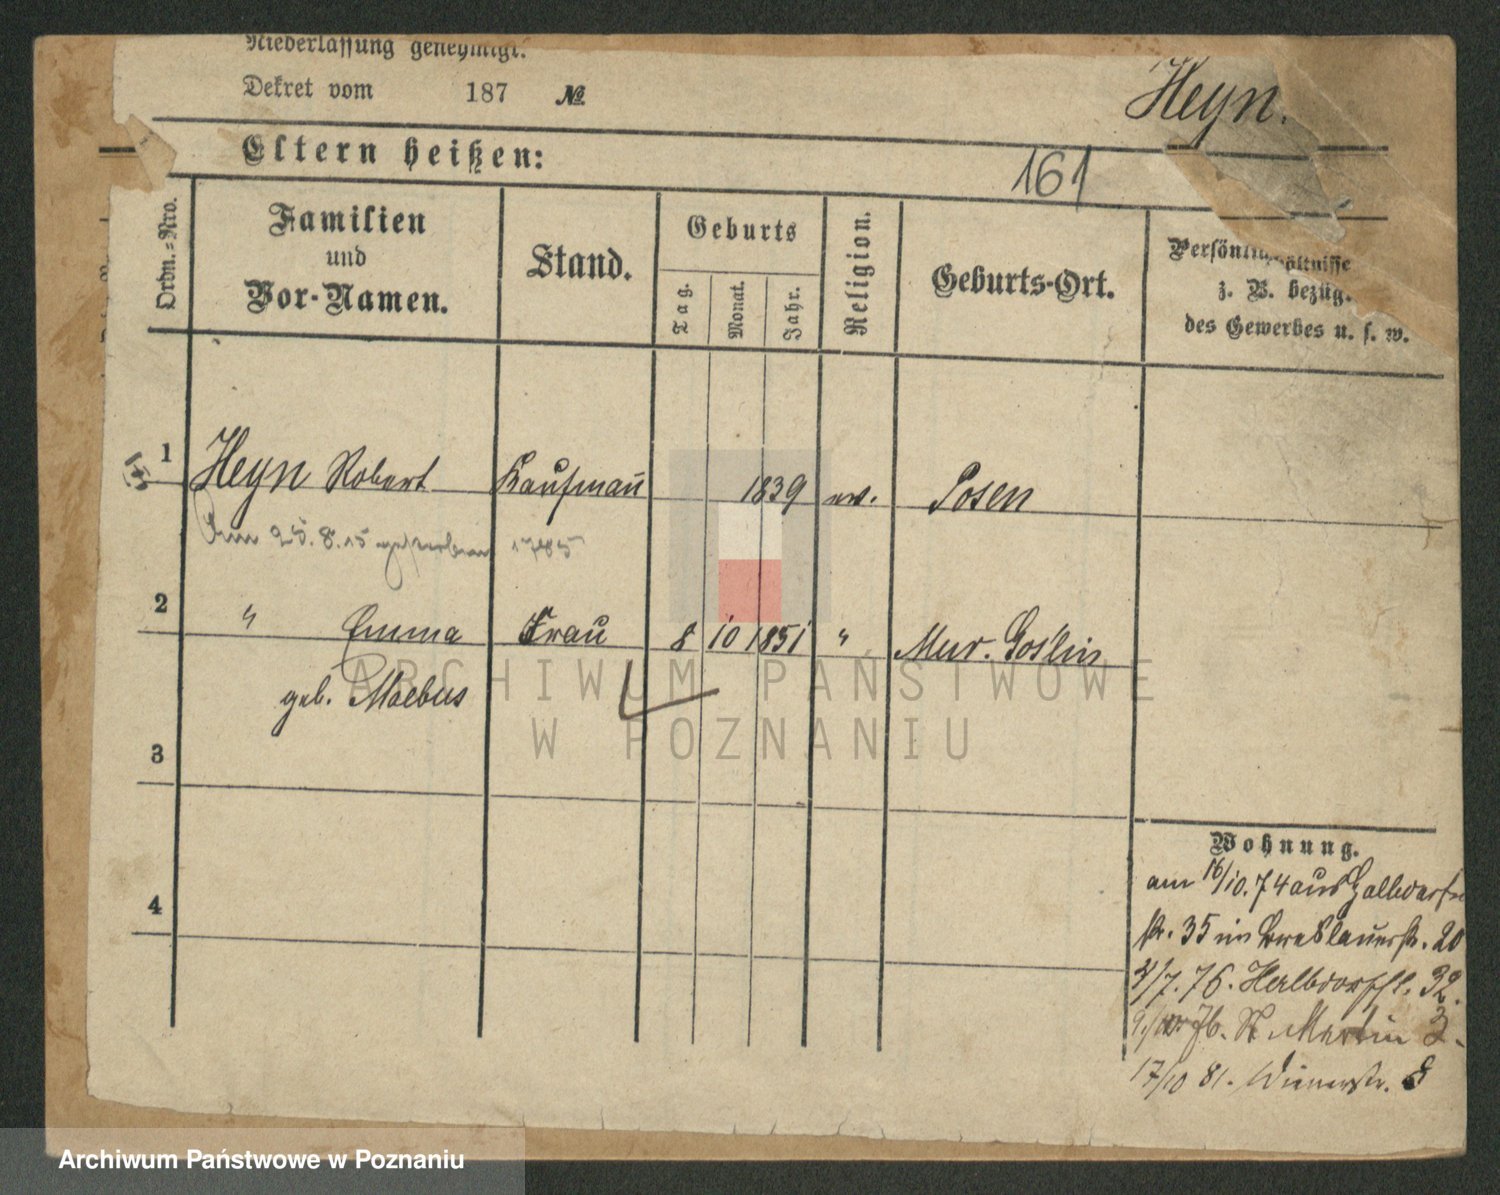 Niederlassung genehmigt.
Dekret vom 187 №
Heyn.
Eltern heißen:
161
Ordn.=Nro.
Familien
und
Vor-Namen.
Stand.
Geburts
Tag.
Monat.
Jahr.
Religion.
Geburts-Ort.
z. B. bezüg.
des Gewerbes u. s. w.
1 Heyn Robert Kaufmann 1839 ev. Posen
Am 25. 8. 15 gestorben 1785
2 " Emma Frau 8 10 1851 " Mur. Goslin
geb. Moebus
3
4
Wohnung.
am 16/10. 74 aus Halbdorf
str. 35 in Breslauerstr. 20
/7. 76. Halbdorfstr. 32.
St. Martin 3.
17/10 81. Wienerstr. 8
ARCHIWUM PAŃSTWOWE
W POZNANIU
Archiwum Państwowe w Poznaniu